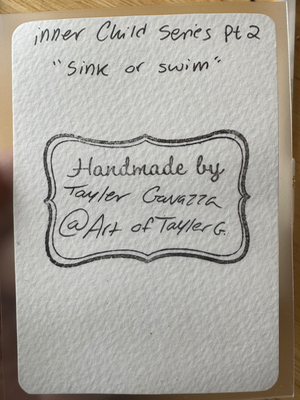 inner Child Series Pt 2
"Sink or swim"
Handmade by
Tayler Gavazza
@Art of Tayler G.